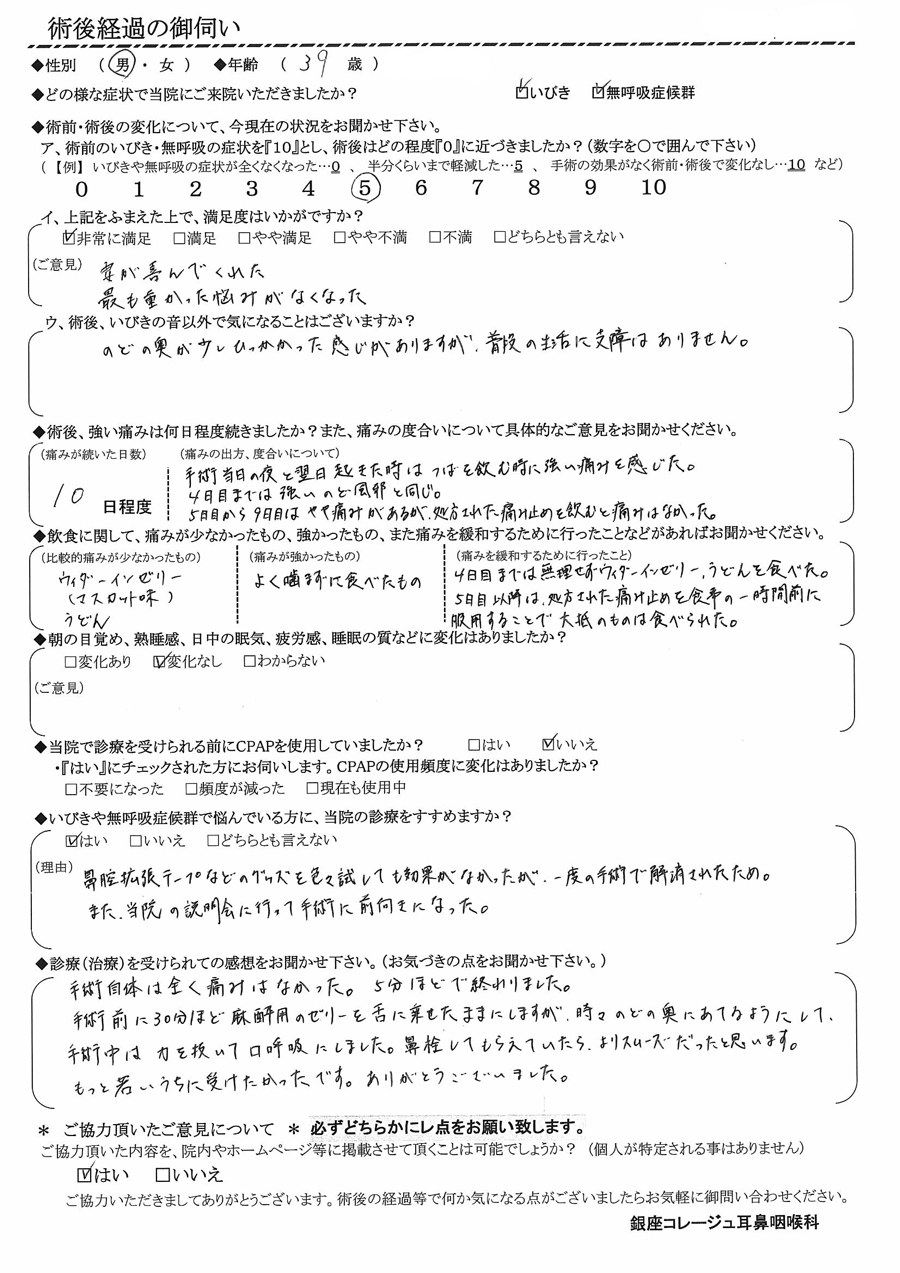 術後経過の御伺い
◆性別 （ 男 ・ 女 ） ◆年齢 （ 39 歳 ）
◆どの様な症状で当院にご来院いただきましたか？ ☑いびき ☑無呼吸症候群
◆術前・術後の変化について、今現在の状況をお聞かせ下さい。
ア、術前のいびき・無呼吸の症状を『10』とし、術後はどの程度『0』に近づきましたか？（数字を〇で囲んで下さい）
（ 【例】 いびきや無呼吸の症状が全くなくなった…0 、 半分くらいまで軽減した…5 、 手術の効果がなく術前・術後で変化なし…10 など）
0 1 2 3 4 5 6 7 8 9 10
イ、上記をふまえた上で、満足度はいかがですか？
☑非常に満足 □満足 □やや満足 □やや不満 □不満 □どちらとも言えない
（ご意見） 妻が喜んでくれた
最も重かった悩みがなくなった
ウ、術後、いびきの音以外で気になることはございますか？
のどの奥が少しひっかかった感じがありますが、普段の生活に支障はありません。
◆術後、強い痛みは何日程度続きましたか？また、痛みの度合いについて具体的なご意見をお聞かせください。
（痛みが続いた日数） （痛みの出方、度合いについて）
手術当日の夜と翌日起きた時はつばを飲む時に強い痛みを感じた。
4日目までは強いのど風邪と同じ。
10 日程度 5日目から9日目はやや痛みがあるが、処方された痛み止めを飲むと痛みはなかった。
◆飲食に関して、痛みが少なかったもの、強かったもの、また痛みを緩和するために行ったことなどがあればお聞かせください。
（比較的痛みが少なかったもの） （痛みが強かったもの） （痛みを緩和するために行ったこと）
ウィダーインゼリー よく噛まずに食べたもの 4日目までは無理せずウィダーインゼリー、うどんを食べた。
（マスカット味） 5日目以降は、処方された痛み止めを食事の一時間前に
うどん 服用することで大抵のものは食べられた。
◆朝の目覚め、熟睡感、日中の眠気、疲労感、睡眠の質などに変化はありましたか？
□変化あり ☑変化なし □わからない
（ご意見）
◆当院で診療を受けられる前にCPAPを使用していましたか？ □はい ☑いいえ
・『はい』にチェックされた方にお伺いします。CPAPの使用頻度に変化はありましたか？
□不要になった □頻度が減った □現在も使用中
◆いびきや無呼吸症候群で悩んでいる方に、当院の診療をすすめますか？
☑はい □いいえ □どちらとも言えない
（理由） 鼻腔拡張テープなどのグッズを色々試しても効果がなかったが、一度の手術で解消されたため。
また、当院の説明会に行って手術に前向きになった。
◆診療（治療）を受けられての感想をお聞かせ下さい。（お気づきの点をお聞かせ下さい。）
手術自体は全く痛みはなかった。5分ほどで終わりました。
手術前に30分ほど麻酔用のゼリーを舌に乗せたままにしますが、時々のどの奥にあてるようにして、
手術中は力を抜いて口呼吸にしました。鼻栓してもらえていたら、よりスムーズだったと思います。
もっと若いうちに受けたかったです。ありがとうございました。
＊ ご協力頂いたご意見について ＊ 必ずどちらかにレ点をお願い致します。
ご協力頂いた内容を、院内やホームページ等に掲載させて頂くことは可能でしょうか？ （個人が特定される事はありません）
☑はい □いいえ
ご協力いただきましてありがとうございます。術後の経過等で何か気になる点がございましたらお気軽に御問い合わせください。
銀座コレージュ耳鼻咽喉科